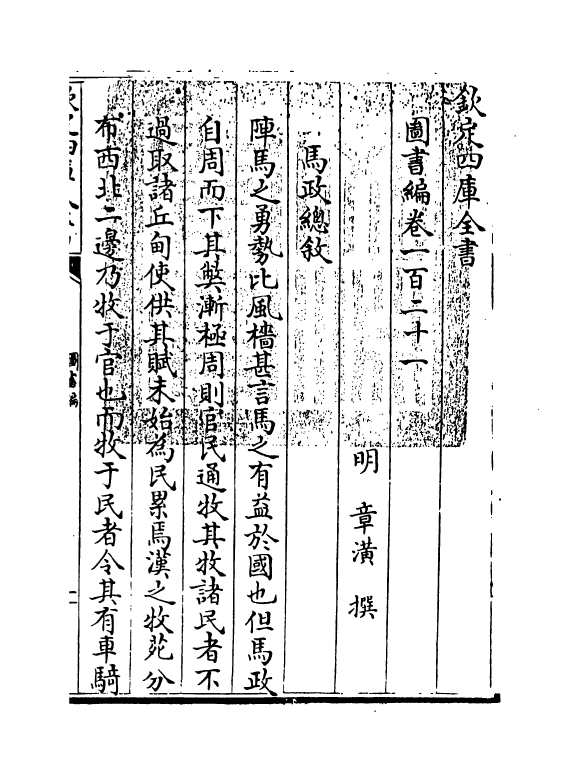 欽定四庫全書
圖書編卷一百二十一
明 章潢 撰
馬政總敘
陣馬之勇勢比風檣甚言馬之有益於國也但馬政
自周而下其弊漸極周則官民通牧其牧諸民者不
過取諸丘甸使供其賦未始為民累焉漢之牧苑分
布西北二邊乃牧于官也而牧于民者令其有車騎
圖書編